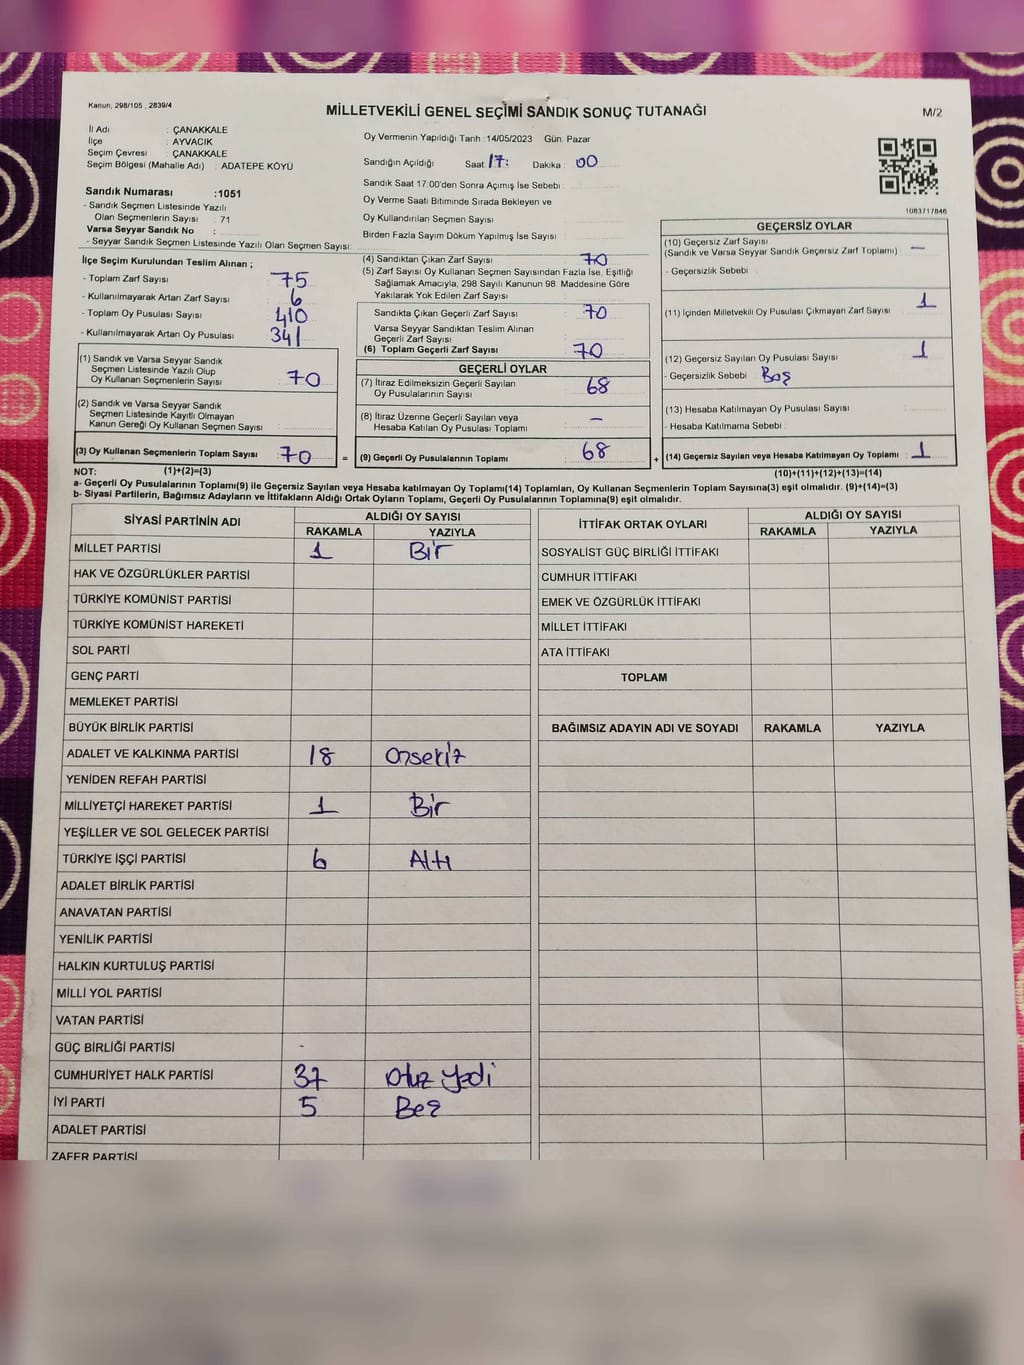 Kanun, 298/105 , 2839/4
MİLLETVEKİLİ GENEL SEÇİMİ SANDIK SONUÇ TUTANAĞI
M/2
İl Adı : ÇANAKKALE
İlçe : AYVACIK
Seçim Çevresi : ÇANAKKALE
Seçim Bölgesi (Mahalle Adı) : ADATEPE KÖYÜ
Oy Vermenin Yapıldığı Tarih :14/05/2023 Gün. Pazar
Sandığın Açıldığı Saat 17: Dakika : 00
Sandık Saat 17.00'den Sonra Açımış İse Sebebi :
Oy Verme Saati Bitiminde Sırada Bekleyen ve
Oy Kullandırılan Seçmen Sayısı
Birden Fazla Sayım Döküm Yapılmış İse Sayısı
1083717846
Sandık Numarası :1051
- Sandık Seçmen Listesinde Yazılı
Olan Seçmenlerin Sayısı : 71
Varsa Seyyar Sandık No :
- Seyyar Sandık Seçmen Listesinde Yazılı Olan Seçmen Sayısı:
İlçe Seçim Kurulundan Teslim Alınan ;
- Toplam Zarf Sayısı : 75
- Kullanılmayarak Artan Zarf Sayısı : 6
- Toplam Oy Pusulası Sayısı : 410
- Kullanılmayarak Artan Oy Pusulası : 341
(1) Sandık ve Varsa Seyyar Sandık
Seçmen Listesinde Yazılı Olup
Oy Kullanan Seçmenlerin Sayısı : 70
(2) Sandık ve Varsa Seyyar Sandık
Seçmen Listesinde Kayıtlı Olmayan
Kanun Gereği Oy Kullanan Seçmen Sayısı :
(3) Oy Kullanan Seçmenlerin Toplam Sayısı : 70 =
(4) Sandıktan Çıkan Zarf Sayısı : 70
(5) Zarf Sayısı Oy Kullanan Seçmen Sayısından Fazla İse, Eşitliği
Sağlamak Amacıyla; 298 Sayılı Kanunun 98. Maddesine Göre
Yakılarak Yok Edilen Zarf Sayısı
Sandıkta Çıkan Geçerli Zarf Sayısı : 70
Varsa Seyyar Sandıktan Teslim Alınan
Geçerli Zarf Sayısı
(6) Toplam Geçerli Zarf Sayısı : 70
GEÇERLİ OYLAR
(7) İtiraz Edilmeksizin Geçerli Sayılan
Oy Pusulalarının Sayısı : 68
(8) İtiraz Üzerine Geçerli Sayılan veya
Hesaba Katılan Oy Pusulası Toplamı : –
(9) Geçerli Oy Pusulalarının Toplamı : 68 +
GEÇERSİZ OYLAR
(10) Geçersiz Zarf Sayısı
(Sandık ve Varsa Seyyar Sandık Geçersiz Zarf Toplamı) : –
- Geçersizlik Sebebi :
(11) İçinden Milletvekili Oy Pusulası Çıkmayan Zarf Sayısı : 1
(12) Geçersiz Sayılan Oy Pusulası Sayısı : 1
- Geçersizlik Sebebi : Boş
(13) Hesaba Katılmayan Oy Pusulası Sayısı :
- Hesaba Katılmama Sebebi :
(14) Geçersiz Sayılan veya Hesaba Katılmayan Oy Toplamı : 1
NOT: (1)+(2)=(3) (10)+(11)+(12)+(13)=(14)
a- Geçerli Oy Pusulalarının Toplamı(9) ile Geçersiz Sayılan veya Hesaba katılmayan Oy Toplamı(14) Toplamları, Oy Kullanan Seçmenlerin Toplam Sayısına(3) eşit olmalıdır. (9)+(14)=(3)
b- Siyasi Partilerin, Bağımsız Adayların ve İttifakların Aldığı Ortak Oyların Toplamı, Geçerli Oy Pusulalarının Toplamına(9) eşit olmalıdır.
SİYASİ PARTİNİN ADI ALDIĞI OY SAYISI
RAKAMLA YAZIYLA
MİLLET PARTİSİ 1 Bir
HAK VE ÖZGÜRLÜKLER PARTİSİ
TÜRKİYE KOMÜNİST PARTİSİ
TÜRKİYE KOMÜNİST HAREKETİ
SOL PARTİ
GENÇ PARTİ
MEMLEKET PARTİSİ
BÜYÜK BİRLİK PARTİSİ
ADALET VE KALKINMA PARTİSİ 18 Onsekiz
YENİDEN REFAH PARTİSİ
MİLLİYETÇİ HAREKET PARTİSİ 1 Bir
YEŞİLLER VE SOL GELECEK PARTİSİ
TÜRKİYE İŞÇİ PARTİSİ 6 Altı
ADALET BİRLİK PARTİSİ
ANAVATAN PARTİSİ
YENİLİK PARTİSİ
HALKIN KURTULUŞ PARTİSİ
MİLLİ YOL PARTİSİ
VATAN PARTİSİ
GÜÇ BİRLİĞİ PARTİSİ -
CUMHURİYET HALK PARTİSİ 37 Otuz Yedi
İYİ PARTİ 5 Beş
ADALET PARTİSİ
ZAFER PARTİSİ
İTTİFAK ORTAK OYLARI ALDIĞI OY SAYISI
RAKAMLA YAZIYLA
SOSYALİST GÜÇ BİRLİĞİ İTTİFAKI
CUMHUR İTTİFAKI
EMEK VE ÖZGÜRLÜK İTTİFAKI
MİLLET İTTİFAKI
ATA İTTİFAKI
TOPLAM
BAĞIMSIZ ADAYIN ADI VE SOYADI RAKAMLA YAZIYLA